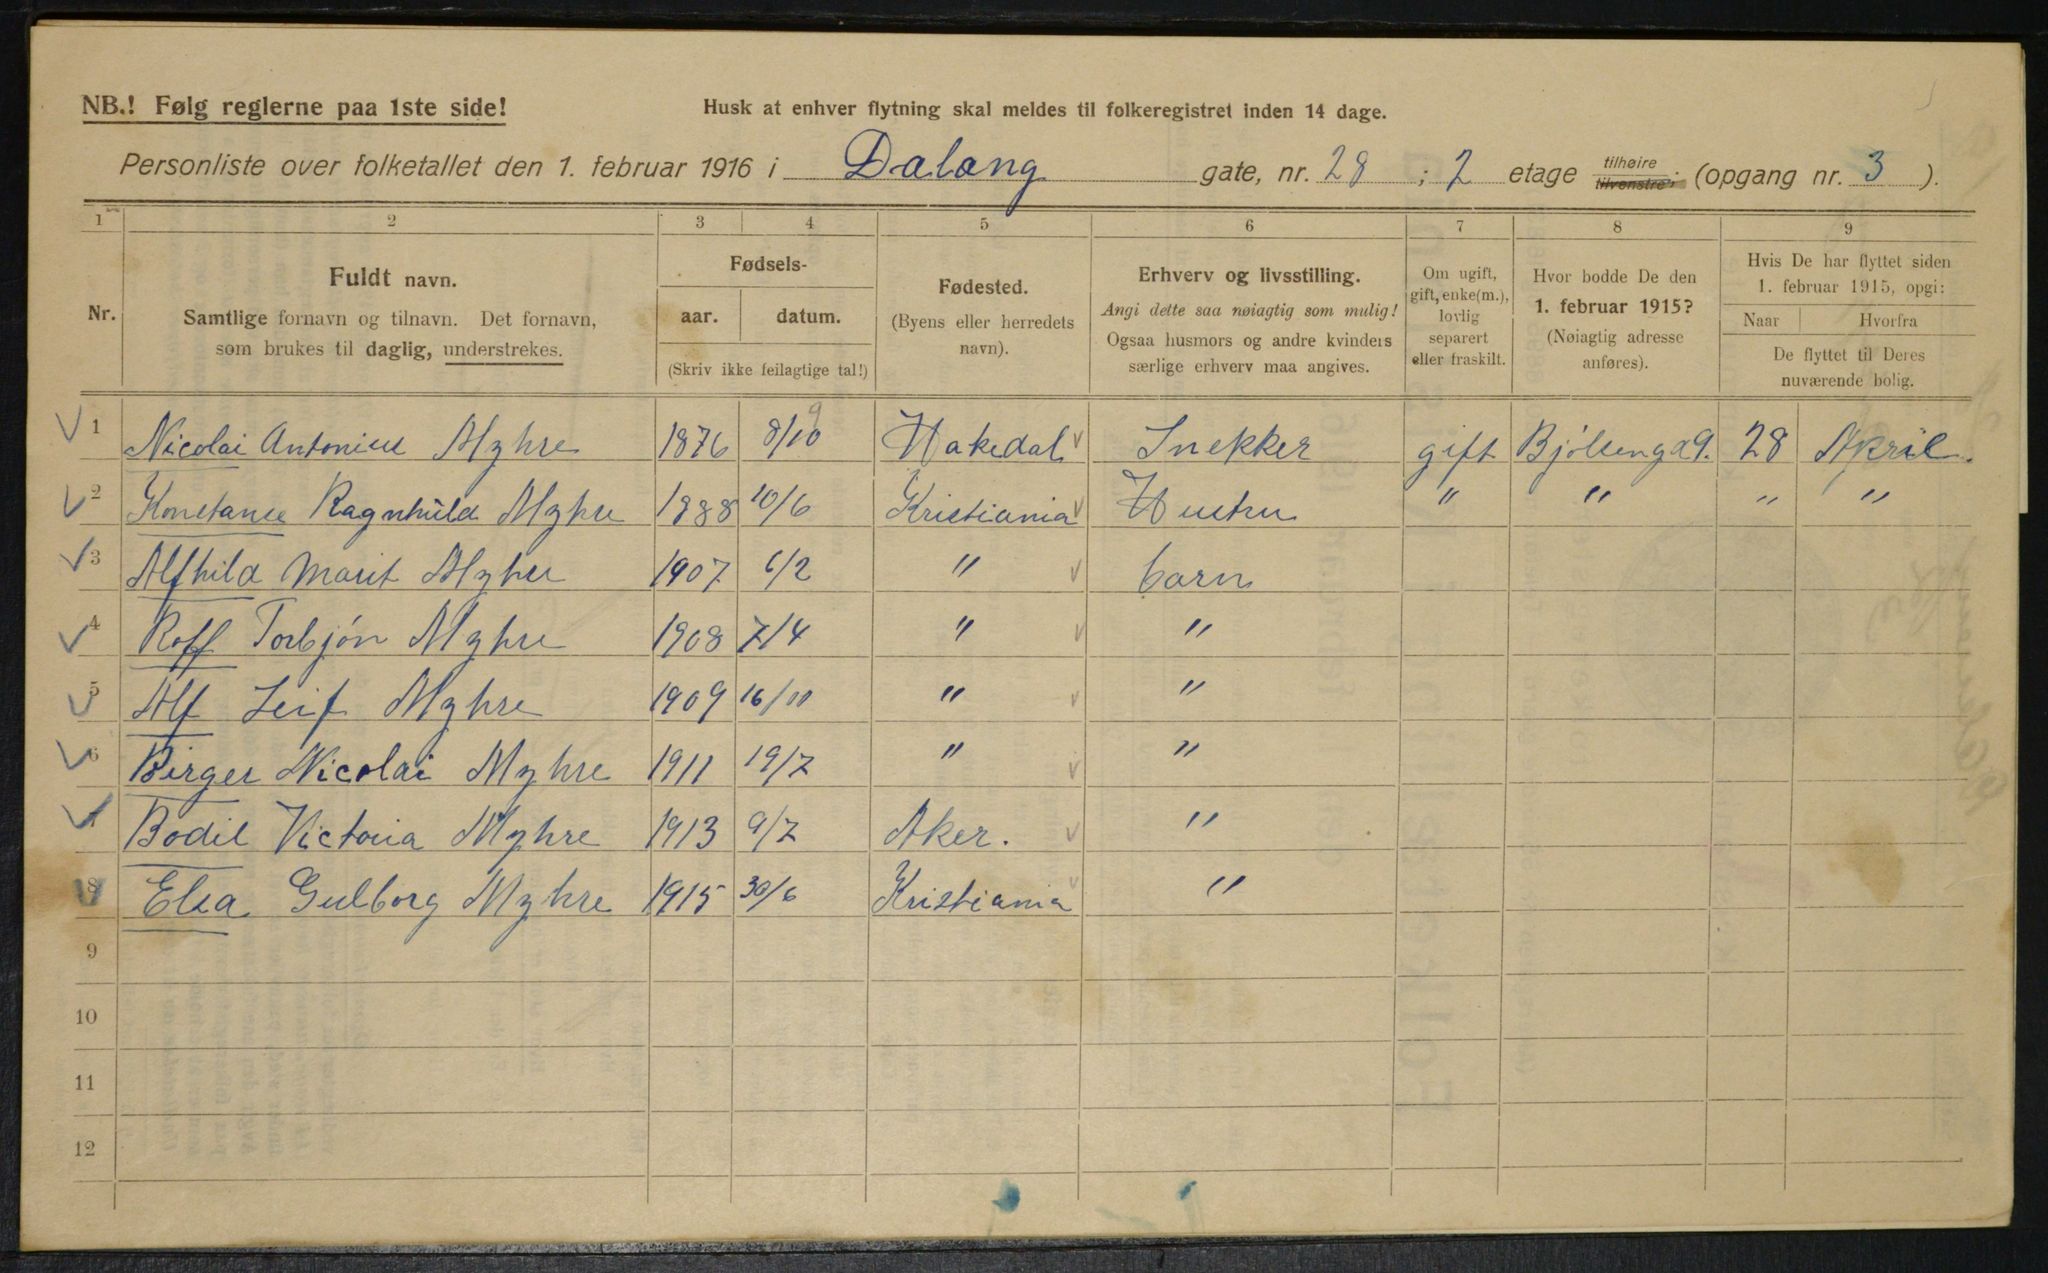 NB.! Følg reglerne paa 1ste side! Husk at enhver flytning skal meldes til folkeregistret inden 14 dage.
Personliste over folketallet den 1. februar 1916 i Dalang gate, nr. 28 ; 2 etage tilhøire tilvenstre; (opgang nr. 3 ).
1 2 3 4 5 6 7 8 9
Nr.
Fuldt navn.
Samtlige fornavn og tilnavn. Det fornavn,
som brukes til daglig, understrekes.
Fødsels-
aar. datum.
(Skriv ikke feilagtige tal!)
Fødested.
(Byens eller herredets
navn).
Erhverv og livsstilling.
Angi dette saa nøiagtig som mulig!
Ogsaa husmors og andre kvinders
særlige erhverv maa angives.
Om ugift,
gift, enke(m.),
lovlig
separert
eller fraskilt.
Hvor bodde De den
1. februar 1915?
(Nøiagtig adresse
anføres).
Hvis De har flyttet siden
1. februar 1915, opgi:
Naar Hvorfra
De flyttet til Deres
nuværende bolig.
1 Nicolai Antonius Myhre 1876 8/10 9 Hakedal Snekker gift Bjölsengaq. 28 April.
2 Konstanse Ragnhild Myhre 1888 10/6 Kristiania Hustru " " " "
3 Alfhild Marit Myhre 1907 6/2 " barn
4 Rolf Torbjön Myhre 1908 7/4 " "
5 Alf Leif Myhre 1909 16/11 " "
6 Birger Nicolai Myhre 1911 19/7 " "
7 Bodil Victoria Myhre 1913 9/7 Aker. "
8 Elsa Gulborg Myhre 1915 30/6 Kristiania "
9
10
11
12